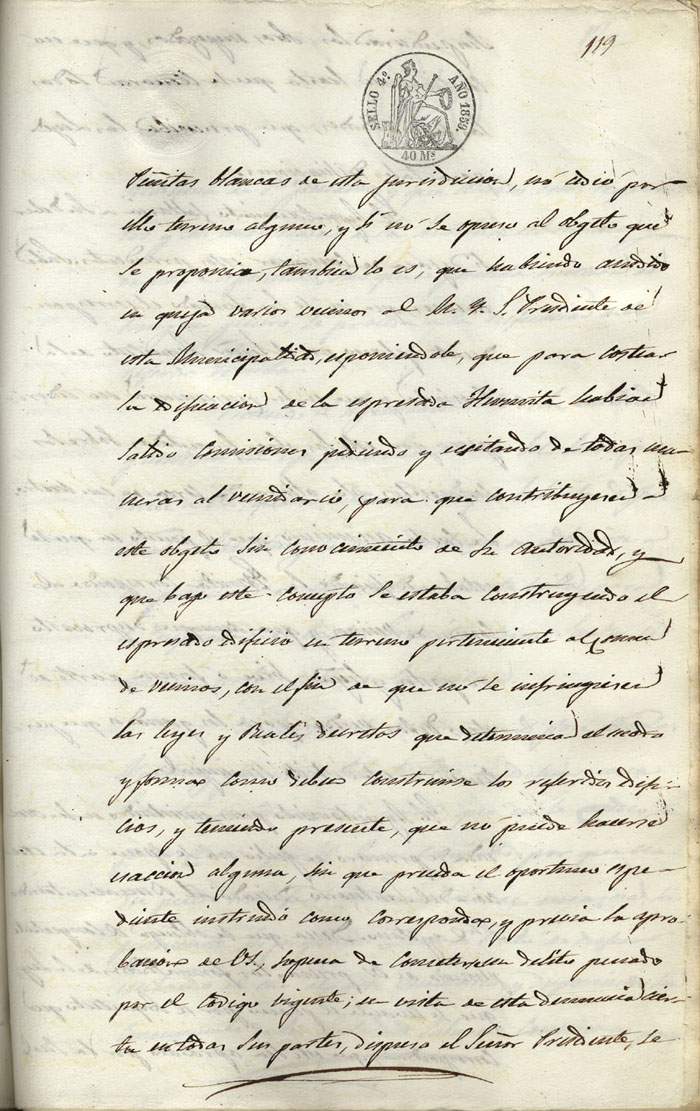 119
SELLO 4º AÑO 1859.
40 Mˢ
Peñitas blancas de esta jurisdicion, nó cidió por
ello terreno alguno, y si nó se opuso al obgeto que
se proponia, tambien lo es, que habiendo acudido
en queja varios vecinos al M. Y. S. Presidente de
esta Municipalidad, esponiendole, que para costear
la edificacion de la espresada Hermita habian
salido Comisiones pidiendo y escitando de todas ma-
neras al vecindario, para que contribuyesen á
este obgeto sin conocimiento de su autoridad, y
que bajo este concepto se estaba construyendo el
espresado edificio en terreno perteneciente al Comun
de vecinos, con el fin de que nó se infringiesen
las leyes y Reales decretos que determinan el modo
y forma como deben construirse los referidos edifi-
cios, y teniendo presente, que nó puede hacerse
esaccion alguna, sin que preceda el oportuno espe-
diente instruido como corresponda, y previa la apro-
bacion de VS., sopena de cometerse un delito penado
por el Codigo vigente; en vista de esta denuncia cier-
ta en todas sus partes, dispuso el Señor Presidente, se